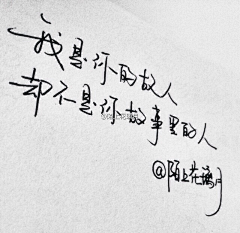 我是你的故人
却不是你故事里的人
@陌上花满月